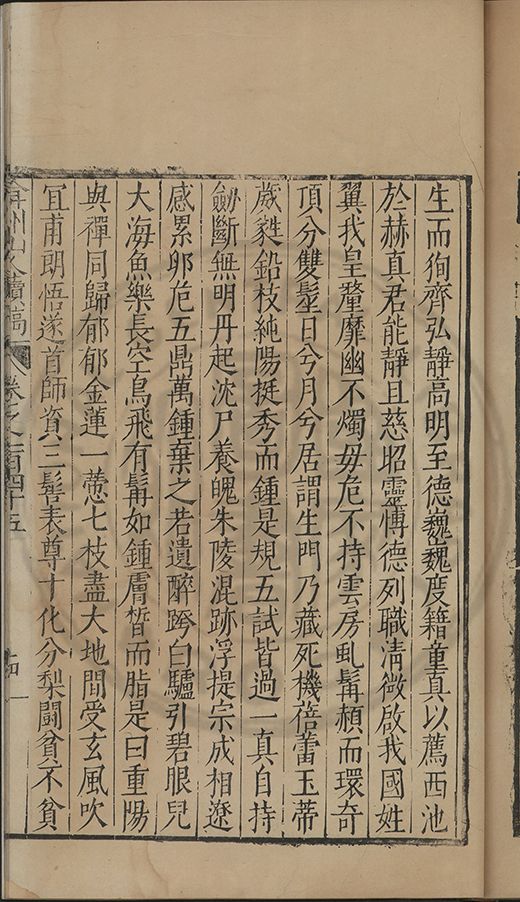 生而徇齊弘靜高明至德巍巍度籍童真以薦西池
於赫真君能靜且慈昭靈博德列職清微啟我國姓
翼我皇釐靡幽不燭毋危不持雲房虬髯頳而環奇
頂分雙髽日兮月兮居謂生門乃藏死機蓓蕾玉蒂
葳蕤鉛枝純陽挺秀而鍾是規五試皆過一真自持
劒斷無明丹起沈尸養魄朱陵混跡浮提宗成相遼
感累卵危五鼎萬鍾棄之若遺醉跨白驢引碧眼兒
大海魚樂長空鳥飛有髯如鍾膚晳而脂是曰重陽
與禪同歸郁郁金蓮一慸七枝盡大地間受玄風吹
宜甫朗悟遂首師資三髻表尊十化分梨鬪貧不貧
弇州山人續稿 卷之一百四十五 十四